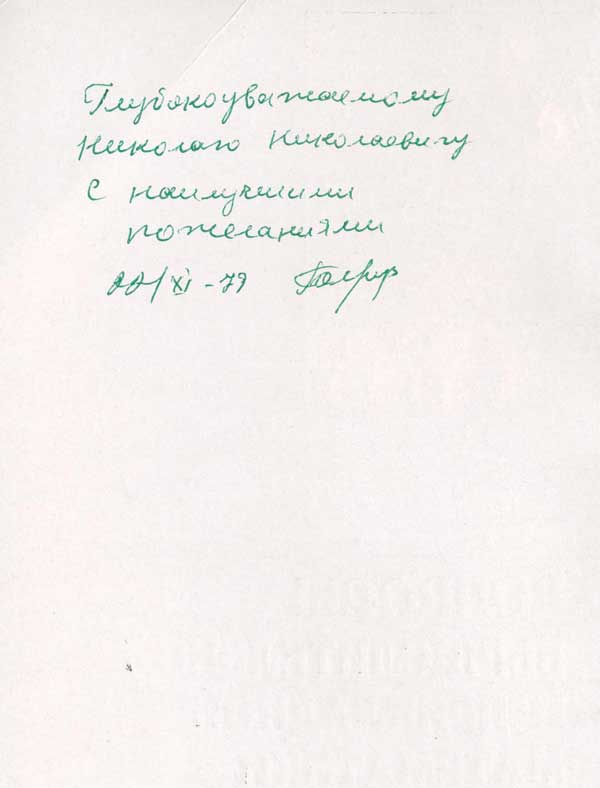 Глубокоуважаемому
Николаю Николаевичу
с наилучшими
пожеланиями
22/XI-79